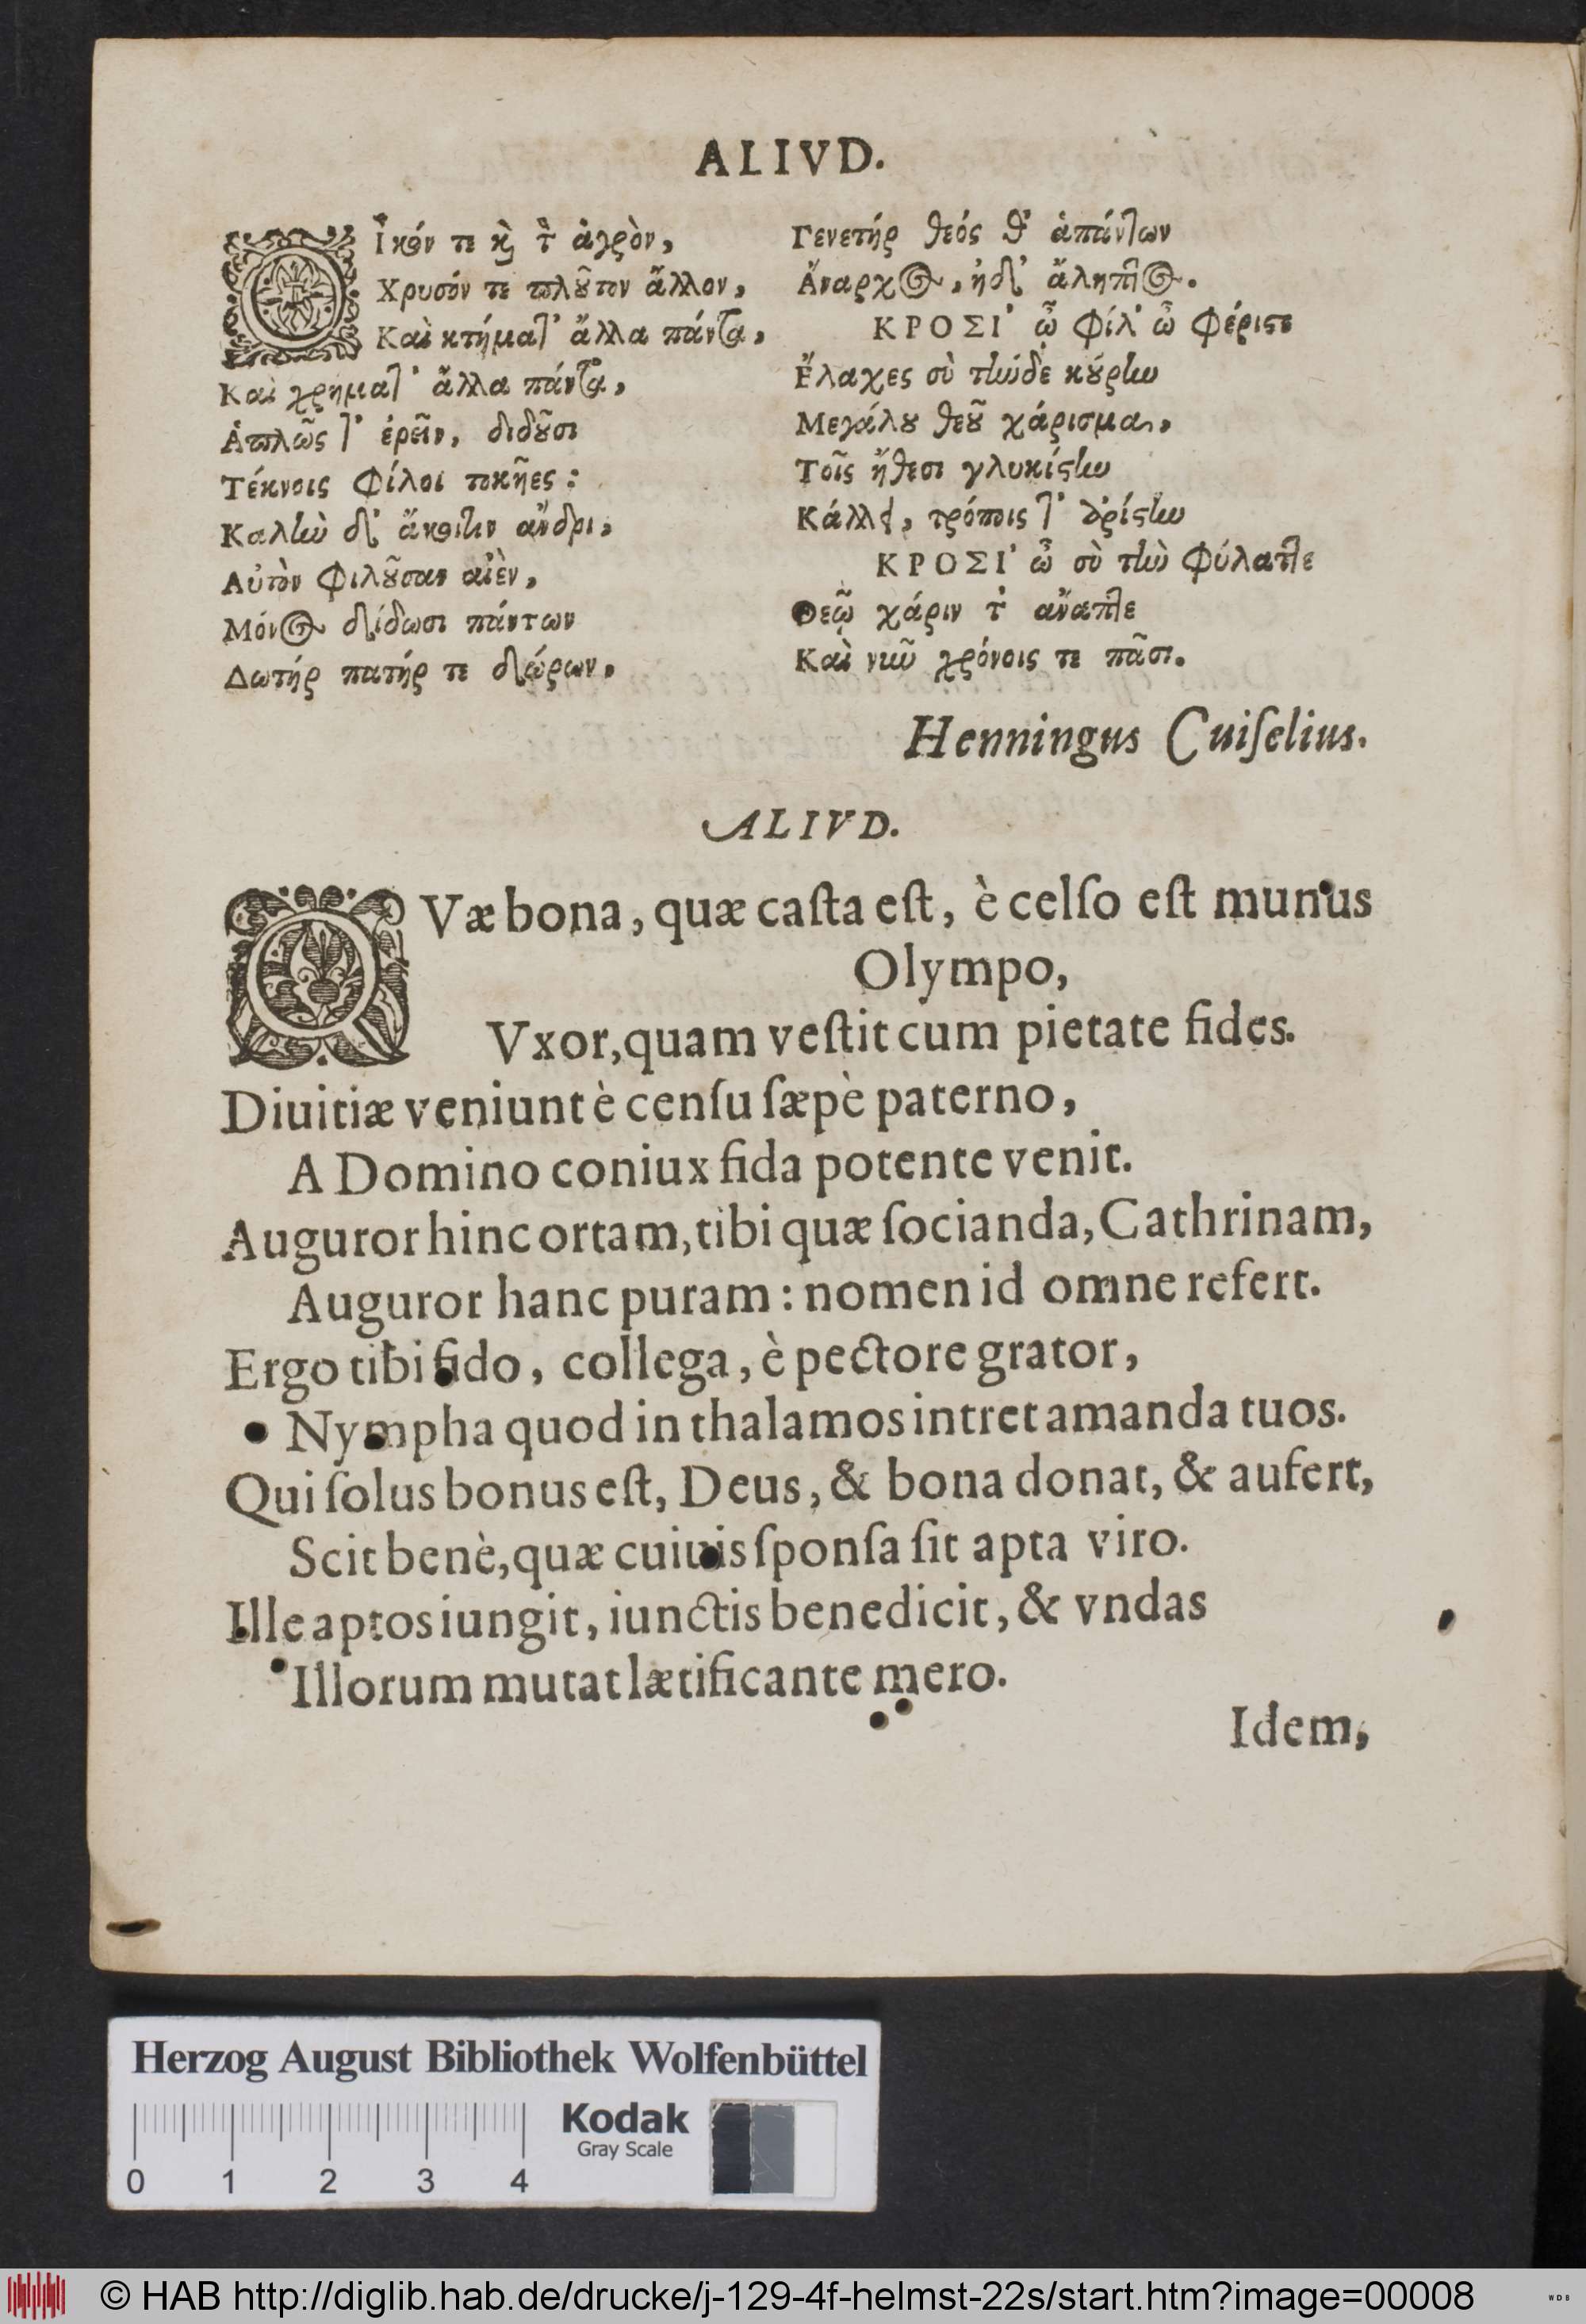 ALIVD.
Οἶκόν τε καὶ τ' ἀγρὸν,
Χρυσόν τε πλοῦτον ἄλλον,
Καὶ κτήματ' ἄλλα πάντα,
Καὶ χρήματ' ἄλλα πάντα,
Ἁπλῶς τ' ἐρεῖν, διδοῦσι
Τέκνοις φίλοι τοκῆες:
Καλὴν δ' ἄκοιτιν ἄνδρι,
Αὐτὸν φιλοῦσαν αἰὲν,
Μόνος δίδωσι πάντων
Δωτήρ πατήρ τε δώρων,
Γενετήρ θεός θ' ἁπάντων
Ἄναρχος, ἠδ' ἄληπτος.
ΚΡΟΣΙ' ὦ φίλ' ὦ φέριστε
Ἔλαχες σὺ τήνδε κούρην
Μεγάλου θεοῦ χάρισμα,
Τοῖς ἤθεσι γλυκίστην
Κάλλει, τρόποις τ' ἀρίστην
ΚΡΟΣΙ' ὦ σὺ τὴν φύλαττε
Θεῷ χάριν τ' ἄναπτε
Καὶ νῦν χρόνοις τε πᾶσι.
Henningus Cuiſelius.
ALIVD.
QVæ bona, quæ caſta eſt, è celſo eſt munus
Olympo,
Vxor, quam veſtit cum pietate fides.
Diuitiæ veniunt è cenſu ſæpè paterno,
A Domino coniux fida potente venit.
Auguror hinc ortam, tibi quæ ſocianda, Cathrinam,
Auguror hanc puram: nomen id omne refert.
Ergo tibi fido, collega, è pectore grator,
Nympha quod in thalamos intret amanda tuos.
Qui ſolus bonus eſt, Deus, & bona donat, & aufert,
Scit benè, quæ cuiuis ſponſa ſit apta viro.
Ille aptos iungit, iunctis benedicit, & vndas
Illorum mutat lætificante mero.
Idem,
Herzog August Bibliothek Wolfenbüttel
Kodak
Gray Scale
0 1 2 3 4
© HAB http://diglib.hab.de/drucke/j-129-4f-helmst-22s/start.htm?image=00008
WDB